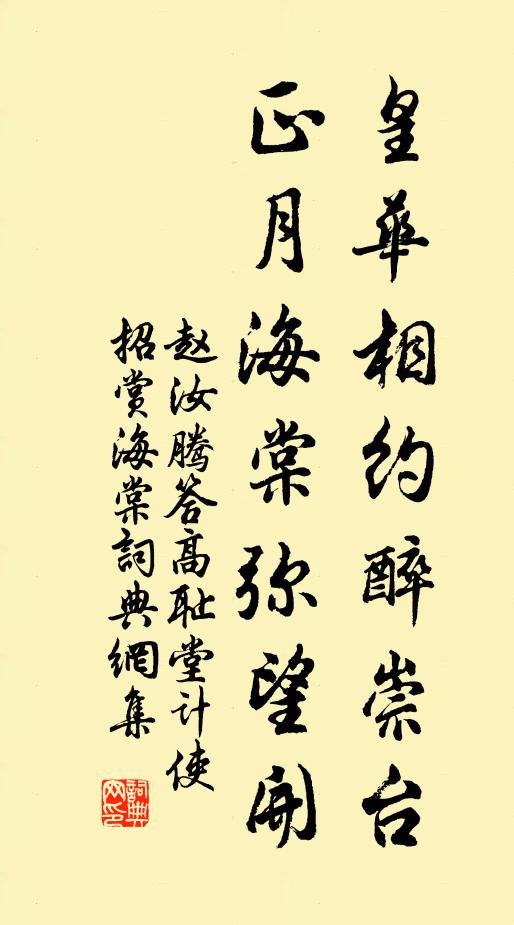 皇華相约醉崇台
正月海棠弥望開
赵汝腾答高耻堂计使
招赏海棠詞典網集
詞典
网印